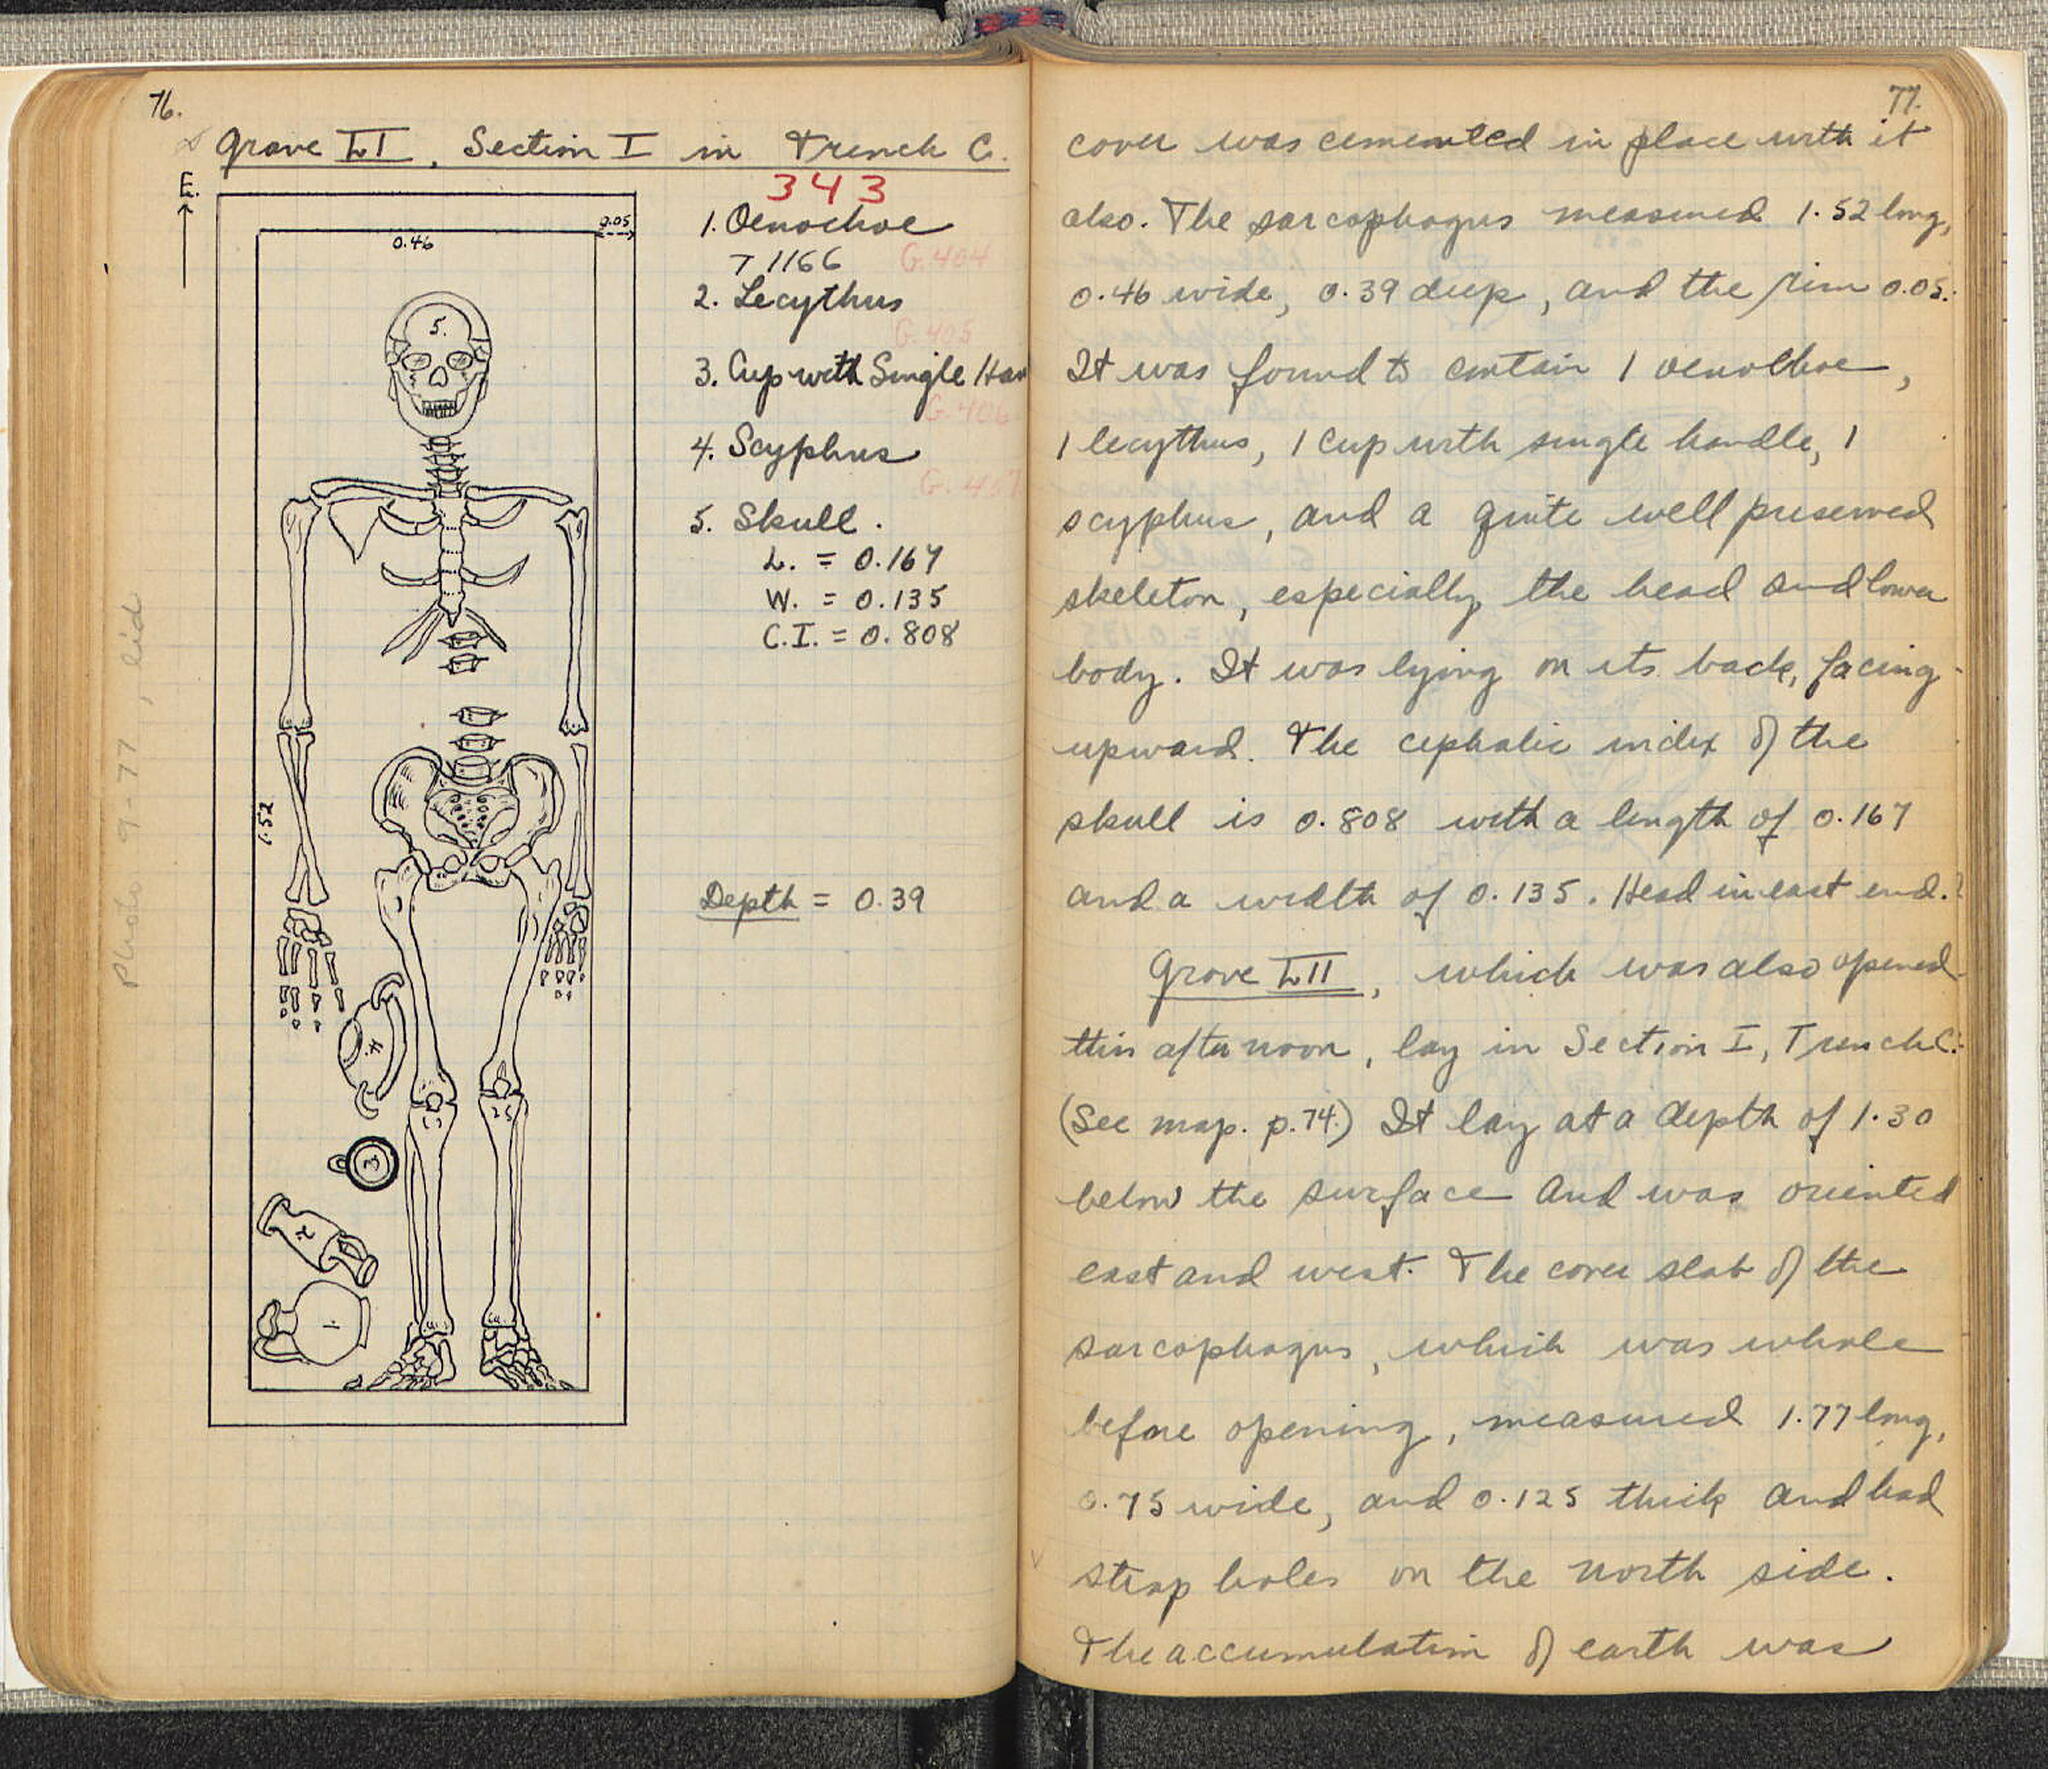 76.
Grave LI, Section I in Trench C.
343
E.
0.05
0.46
1.52
1. Oenochoe
T 1166
G.404
2. Lecythus
G.405
3. Cup with Single Han
G.406
4. Scyphus
G.407
5. Skull.
L. = 0.167
W. = 0.135
C.I. = 0.808
Depth = 0.39
5.
4.
3
2
1
Photo 9-77, lid
77.
cover was cemented in place with it
also. The sarcophagus measured 1.52 long,
0.46 wide, 0.39 deep, and the rim 0.05.
It was found to contain 1 oenochoe,
1 lecythus, 1 cup with single handle, 1
scyphus, and a quite well preserved
skeleton, especially the head and lower
body. It was lying on its back, facing
upward. The cephalic index of the
skull is 0.808 with a length of 0.167
and a width of 0.135. Head in east end.
Grave LII, which was also opened
this afternoon, lay in Section I, Trench C.
(See map. p.74.) It lay at a depth of 1.30
below the surface and was oriented
east and west. The cover slab of the
sarcophagus, which was whole
before opening, measured 1.77 long,
0.75 wide, and 0.125 thick and had
strap holes on the north side.
The accumulation of earth was